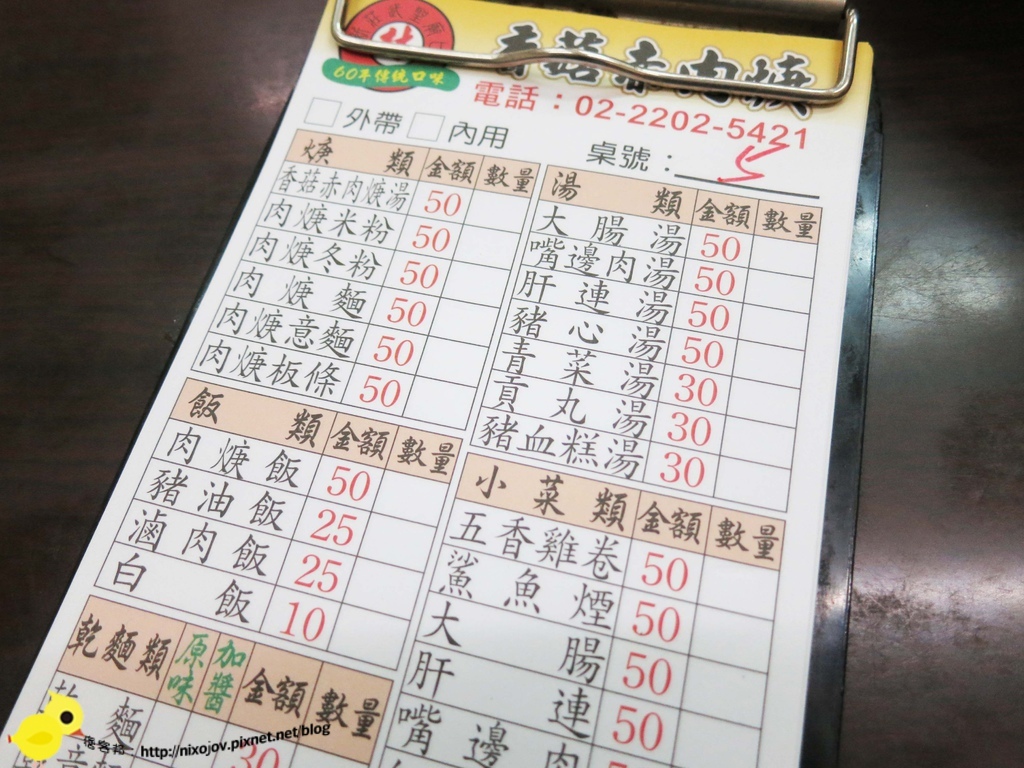 香菇赤肉焿
60年傳統口味
電話：02-2202-5421
外帶 內用
桌號：5
焿類 金額 數量
香菇赤肉焿湯 50
肉焿米粉 50
肉焿冬粉 50
肉焿麵 50
肉焿意麵 50
肉焿板條 50
飯類 金額 數量
肉焿飯 50
豬油飯 25
滷肉飯 25
白飯 10
乾麵類 原味 加醬 金額 數量
麵
30
意麵
湯類 金額 數量
大腸湯 50
嘴邊肉湯 50
肝連湯 50
豬心湯 50
青菜湯 30
貢丸湯 30
豬血糕湯 30
小菜類 金額 數量
五香雞卷 50
鯊魚煙 50
大腸 50
肝連 50
嘴邊肉
http://nixojov.pixnet.net/blog